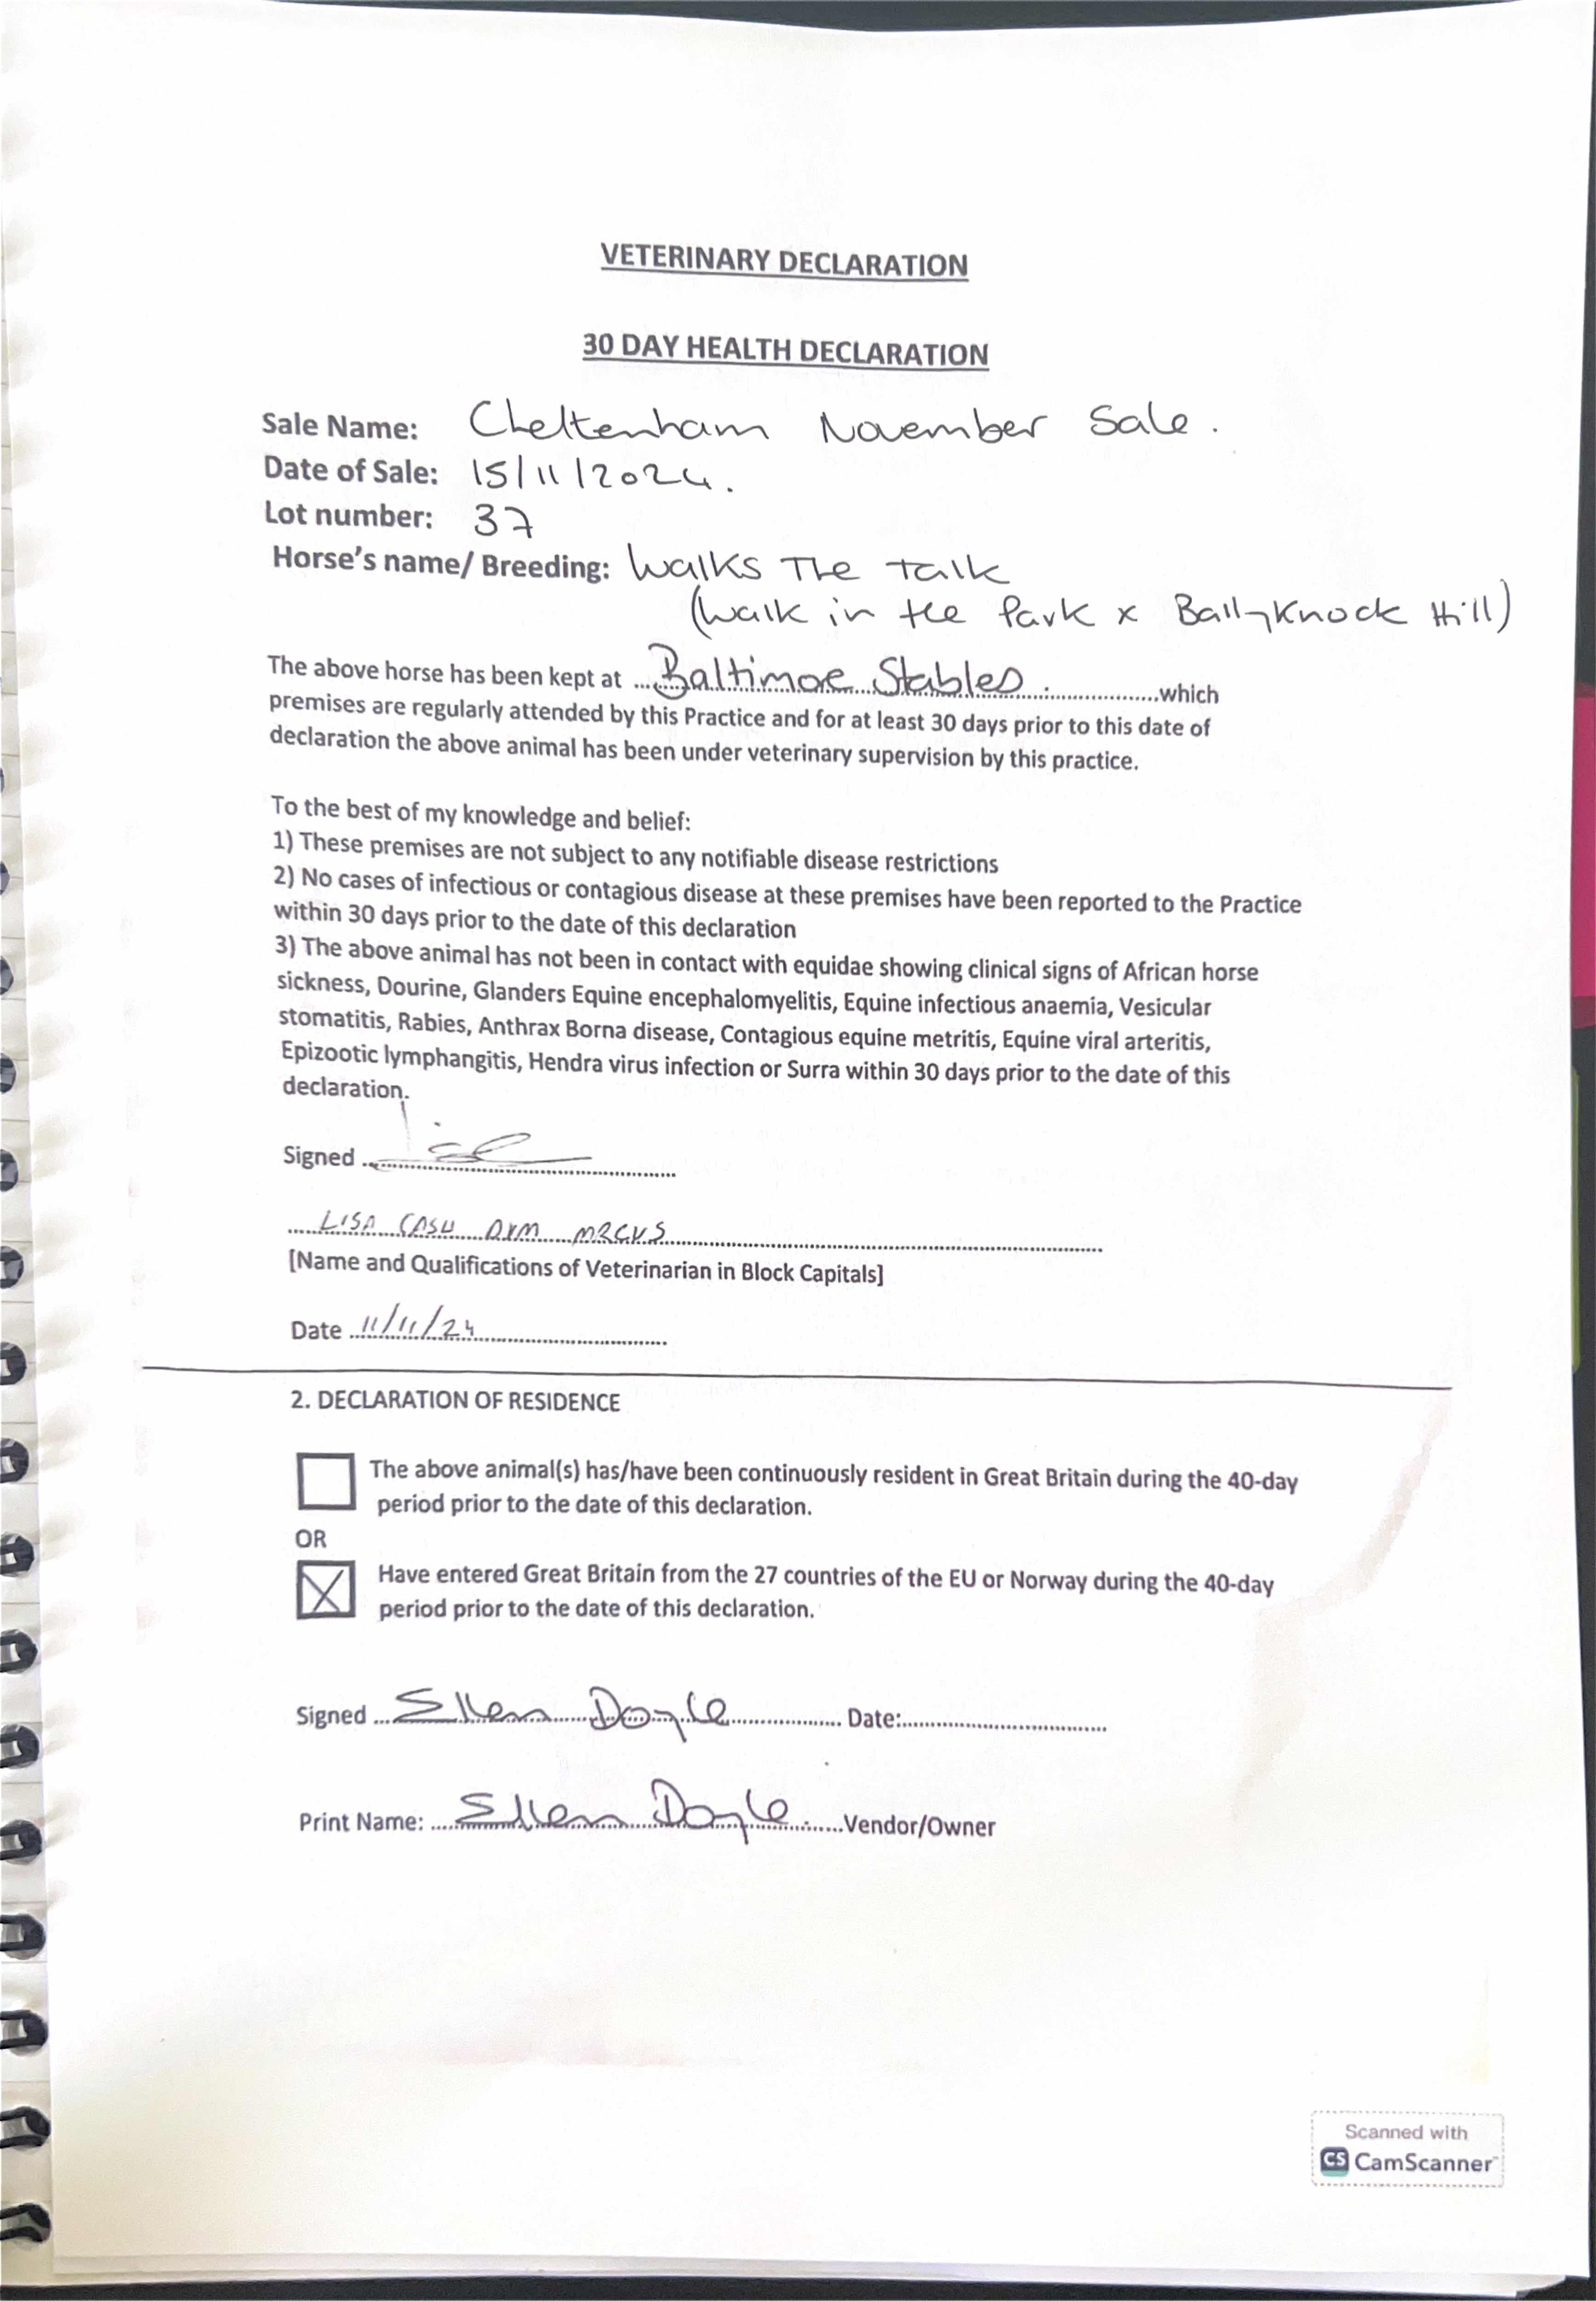 VETERINARY DECLARATION
30 DAY HEALTH DECLARATION
Sale Name: Cheltenham November Sale.
Date of Sale: 15/11/2024.
Lot number: 37
Horse's name/ Breeding: Walks The Talk
(Walk in the Park x Ballyknock Hill)
The above horse has been kept at ... Baltimore Stables ... which
premises are regularly attended by this Practice and for at least 30 days prior to this date of
declaration the above animal has been under veterinary supervision by this practice.
To the best of my knowledge and belief:
1) These premises are not subject to any notifiable disease restrictions
2) No cases of infectious or contagious disease at these premises have been reported to the Practice
within 30 days prior to the date of this declaration
3) The above animal has not been in contact with equidae showing clinical signs of African horse
sickness, Dourine, Glanders Equine encephalomyelitis, Equine infectious anaemia, Vesicular
stomatitis, Rabies, Anthrax Borna disease, Contagious equine metritis, Equine viral arteritis,
Epizootic lymphangitis, Hendra virus infection or Surra within 30 days prior to the date of this
declaration.
Signed
LISA CASH DVM MRCVS
[Name and Qualifications of Veterinarian in Block Capitals]
Date 11/11/24
2. DECLARATION OF RESIDENCE
The above animal(s) has/have been continuously resident in Great Britain during the 40-day
period prior to the date of this declaration.
OR
Have entered Great Britain from the 27 countries of the EU or Norway during the 40-day
period prior to the date of this declaration.
Signed ... Ellen Doyle ... Date:
Print Name: ... Ellen Doyle ... Vendor/Owner
Scanned with
CS CamScanner